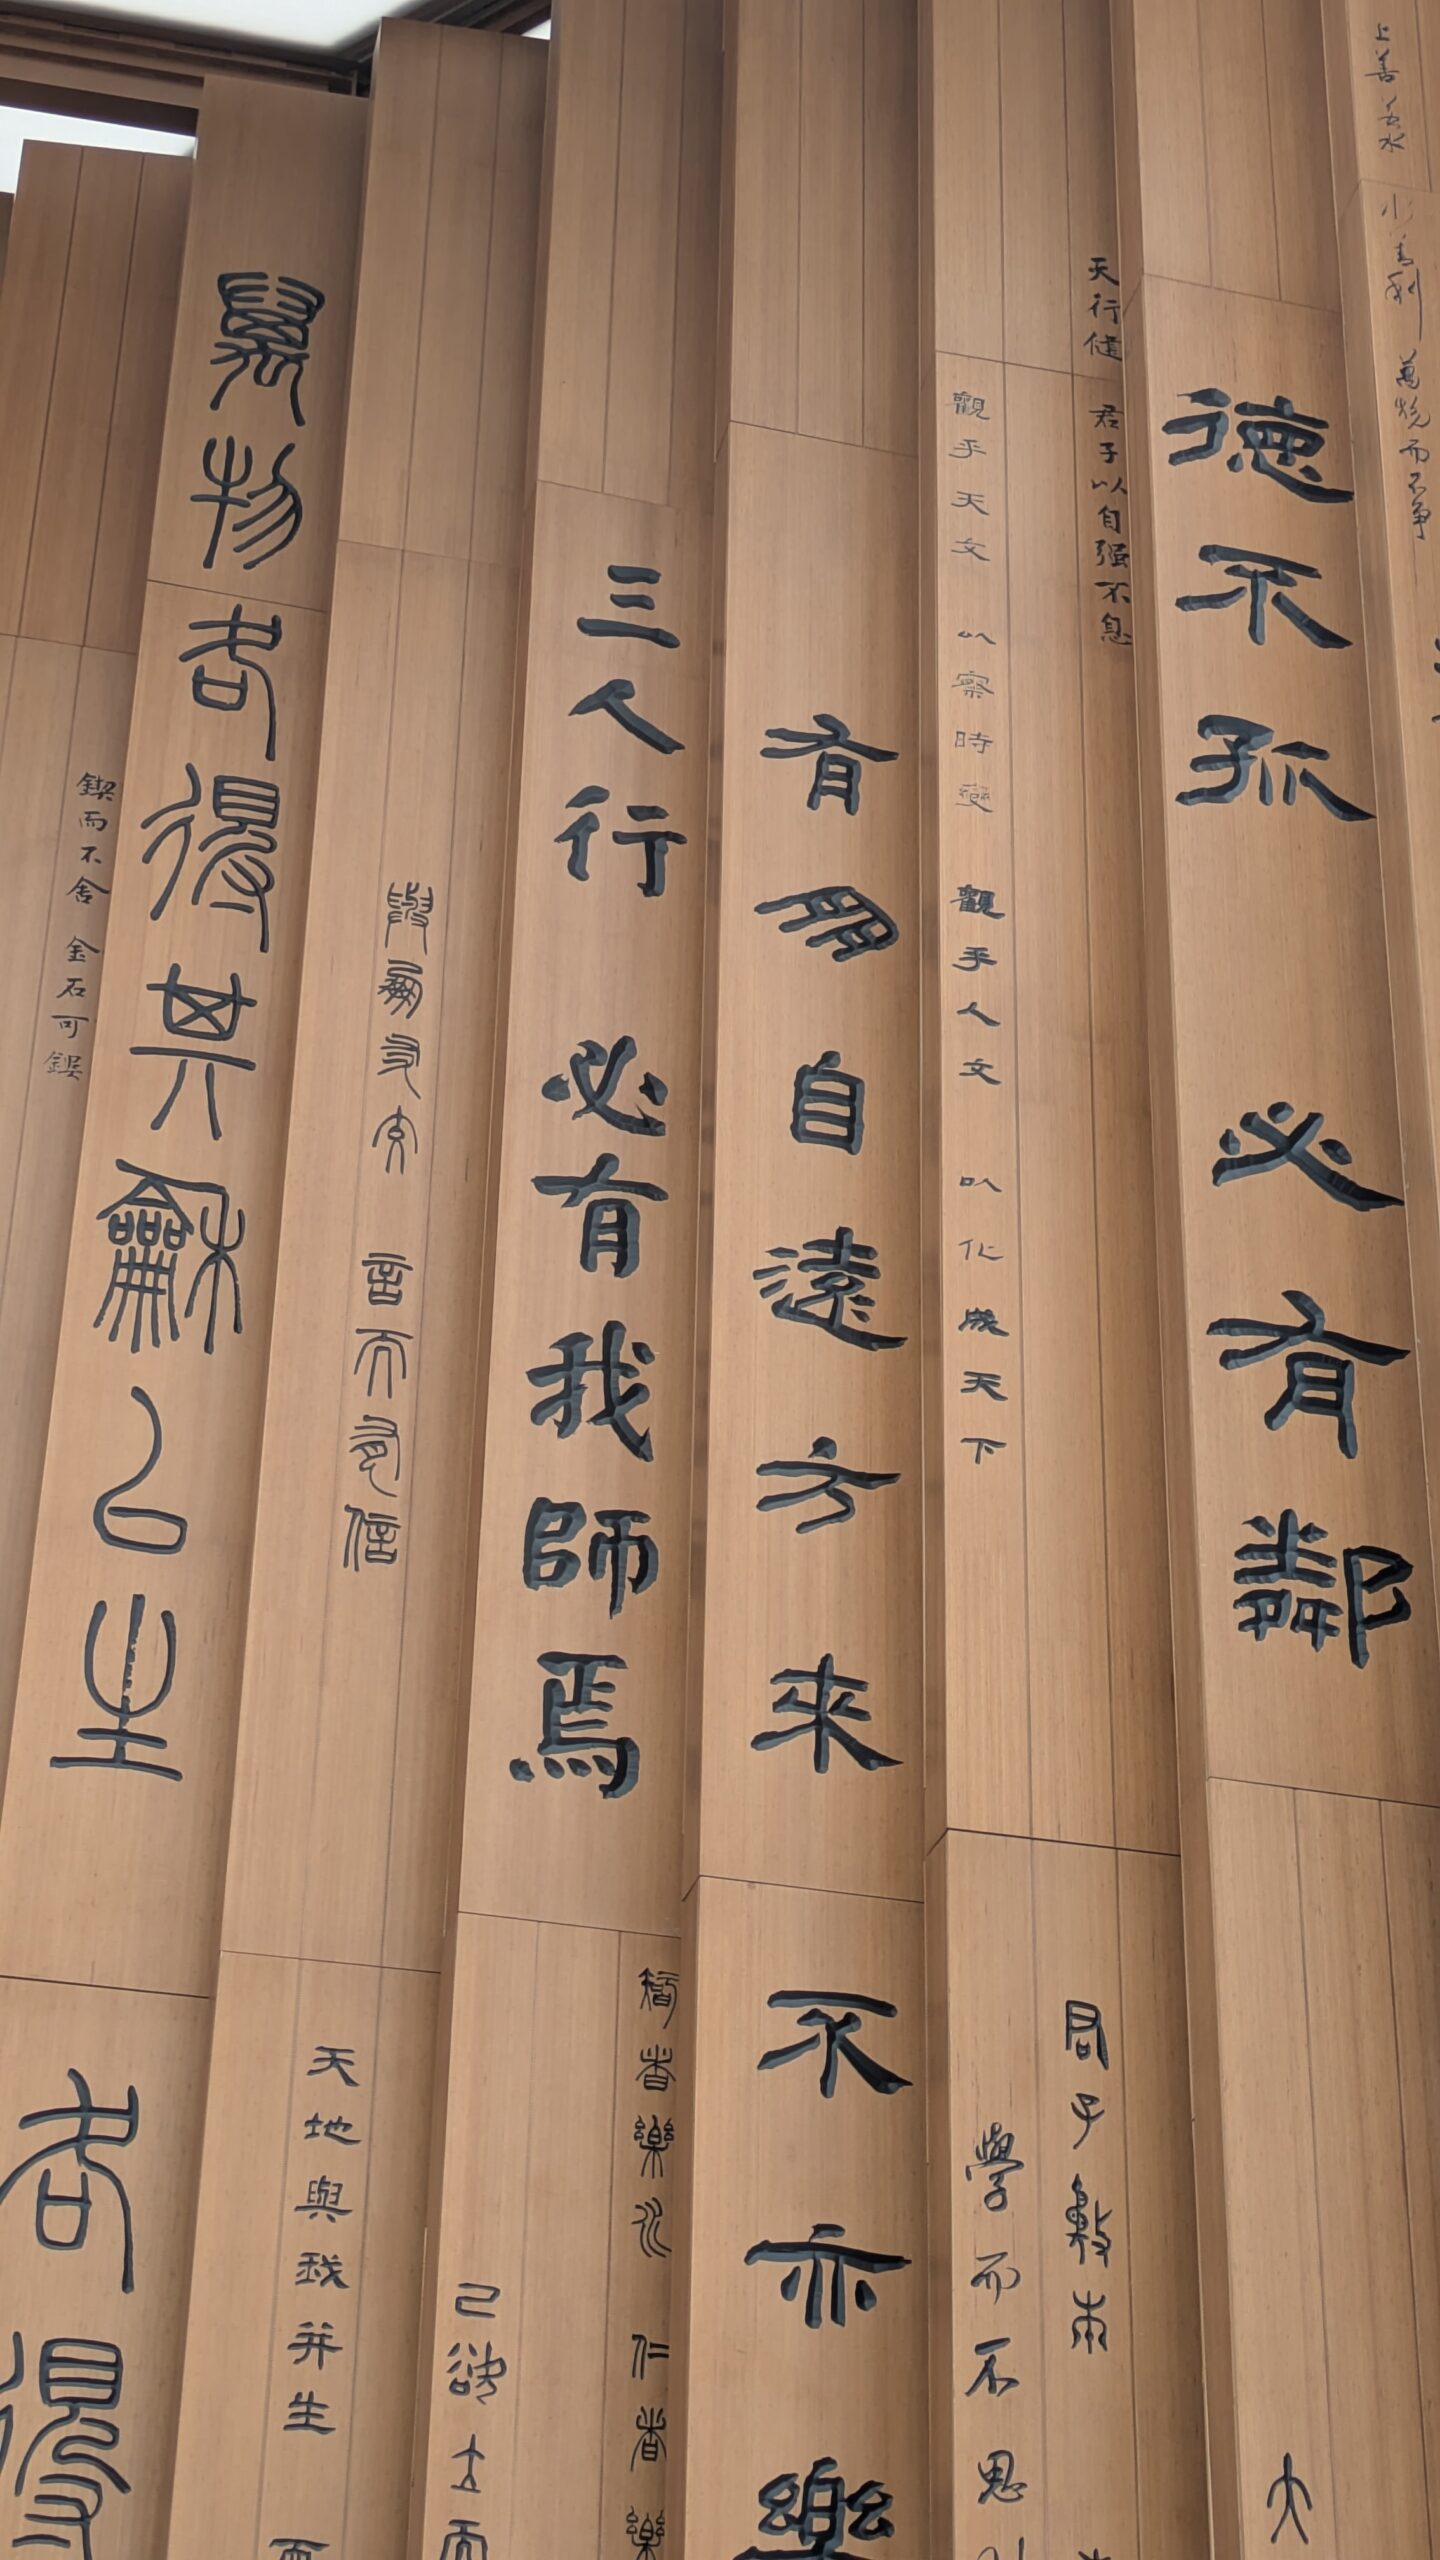 上善若水 水善利 萬物而不争
德不孤 必有鄰
大
天行健 君子以自强不息
觀乎天文 以察時變 觀乎人文 以化成天下
君子務本
學而不思
有朋自遠方來 不亦樂
三人行 必有我師焉
智者樂水 仁者樂
己欲立而
與朋友交 言而有信
天地與我并生 而
萬物各得其龢以生
各得
鍥而不舍 金石可鏤